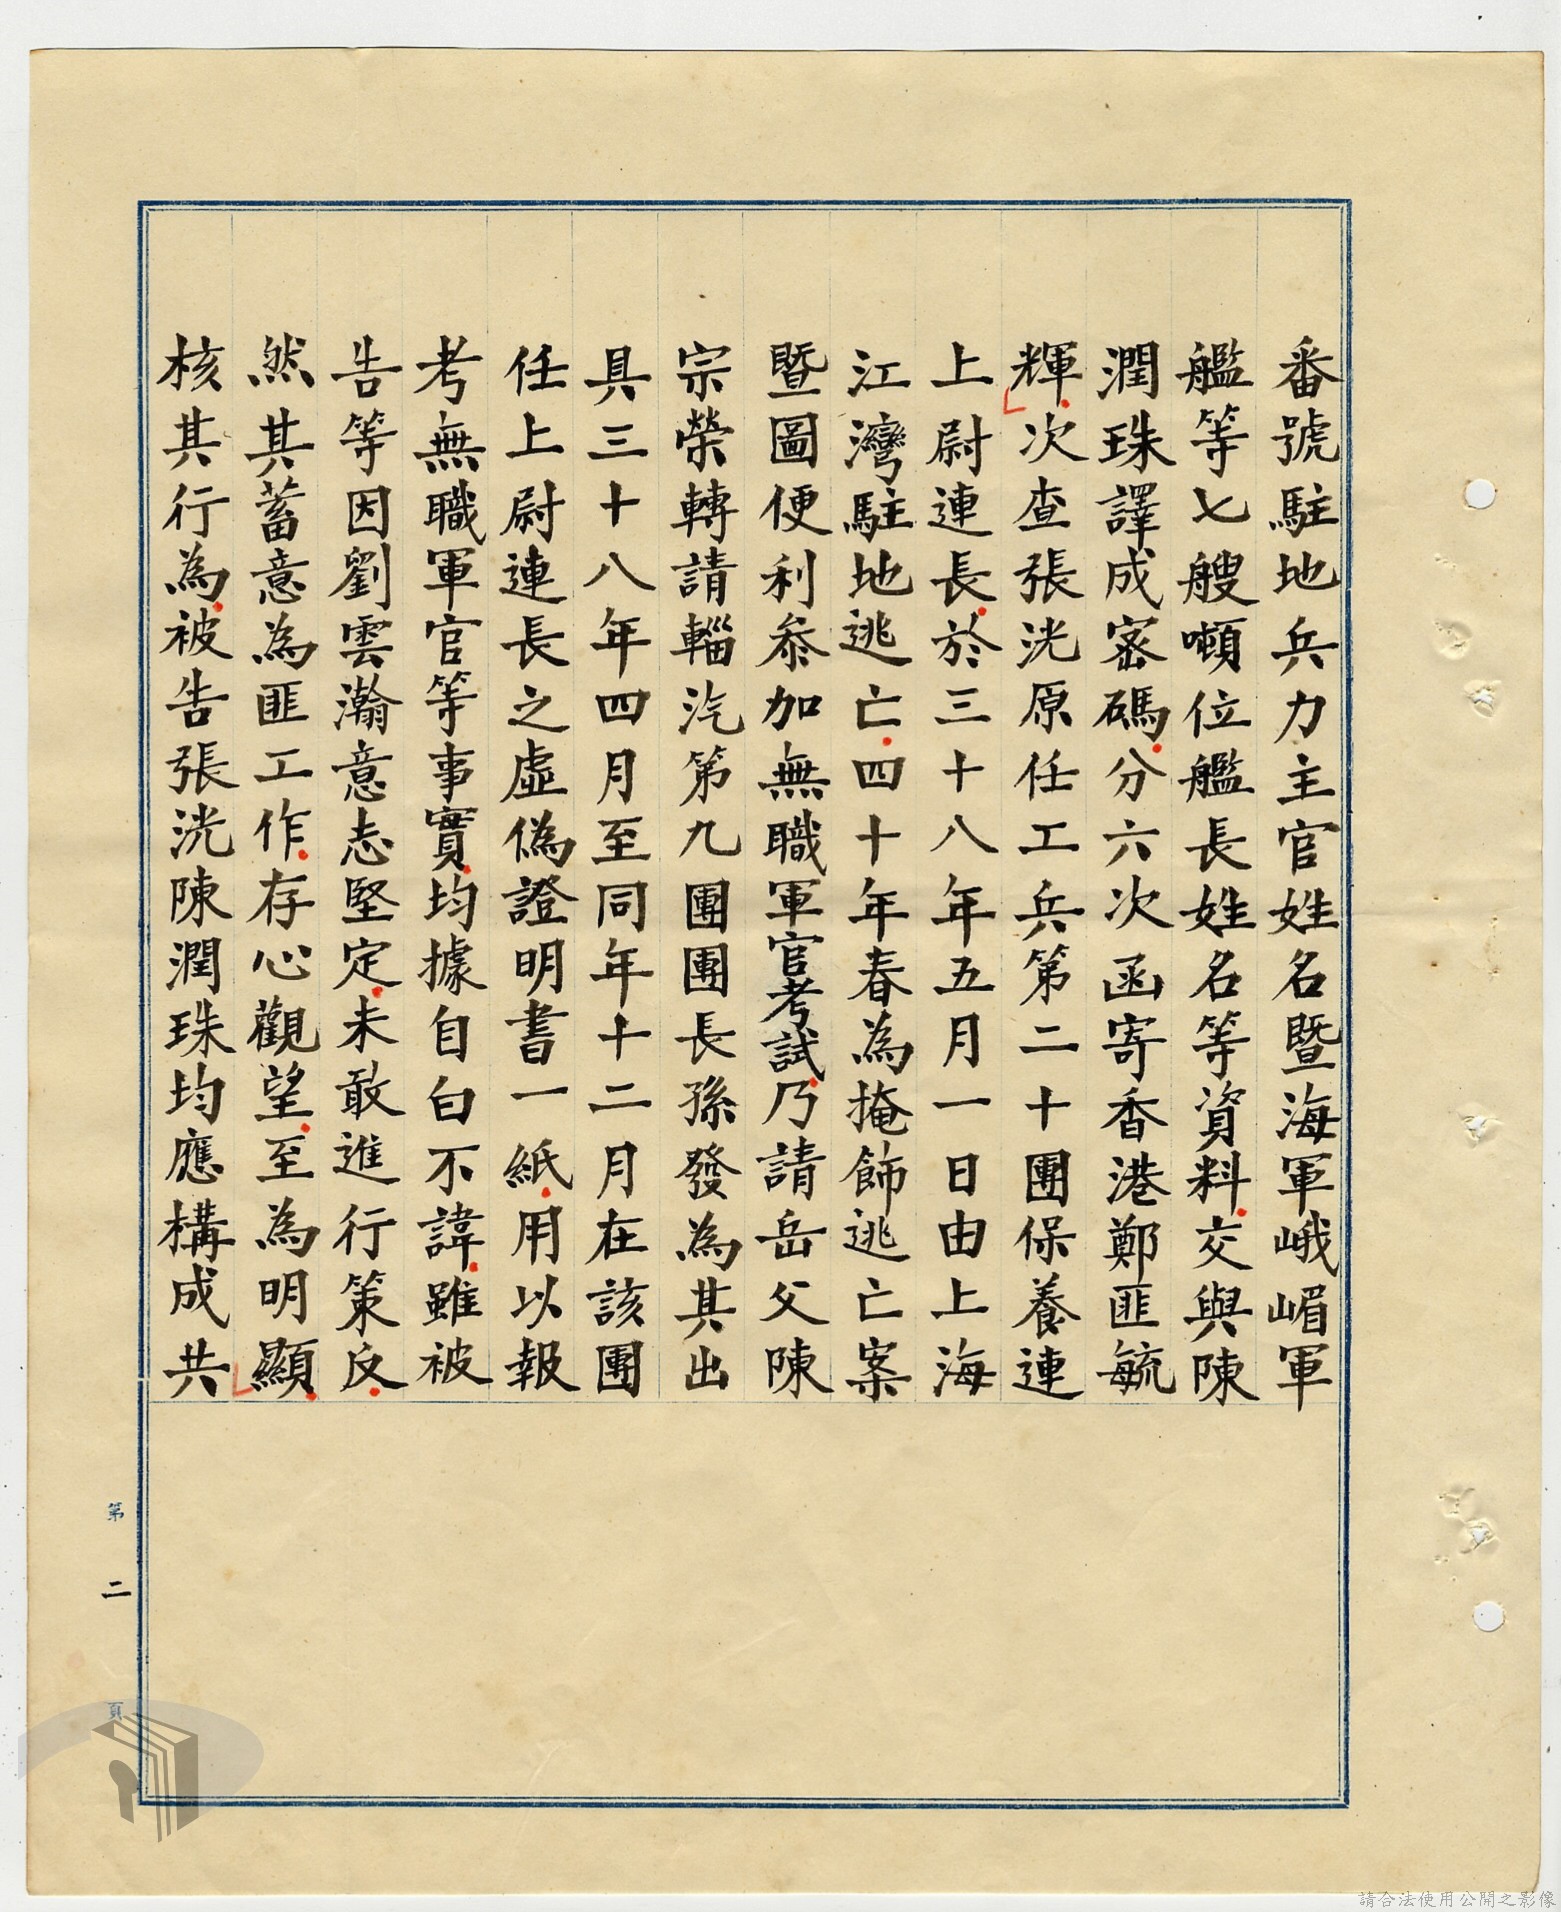 番號駐地兵力主官姓名暨海軍峨嵋軍
艦等七艘噸位艦長姓名等資料交與陳
潤珠譯成密碼分六次函寄香港鄭匪毓
輝次查張洸原任工兵第二十團保養連
上尉連長於三十八年五月一日由上海
江灣駐地逃亡四十年春為掩飾逃亡案
暨圖便利參加無職軍官考試乃請岳父陳
宗榮轉請輜汽第九團團長孫發為其出
具三十八年四月至同年十二月在該團
任上尉連長之虛偽證明書一紙用以報
考無職軍官等事實均據自白不諱雖被
告等因劉雲瀚意志堅定未敢進行策反
然其蓄意為匪工作存心觀望至為明顯
核其行為被告張洸陳潤珠均應構成共
第二頁
請合法使用公開之影像